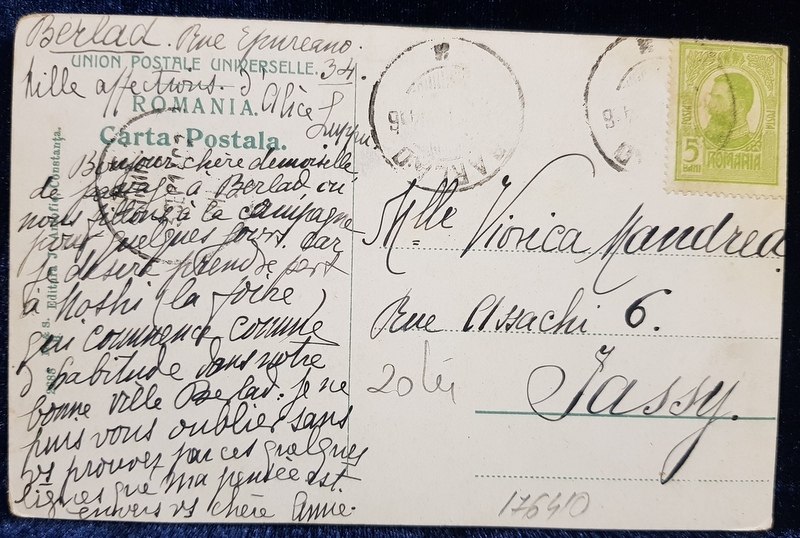 Berlad. Rue Epureano.
UNION POSTALE UNIVERSELLE. 34.
Mille affections. d'
ROMANIA. Alice
Carta Postala. Luppu
Bonjour chère demoiselle,
de passage à Berlad où
nous allons à la campagne
pour quelques jours. Car
je désire prendre part
à Moshi (la foire)
qui commence comme
d'habitude dans notre
bonne ville Berlad. je ne
puis vous oublier sans
vs prouver par ces quelques
lignes que ma pensée est
envers vs chère Amie.
Editura Constanța.
BARLAD
5
BANI
ROMANIA
POSTA
Mlle Viorica Mandrea
Rue Assachi 6.
Jassy.
20 lei
176410